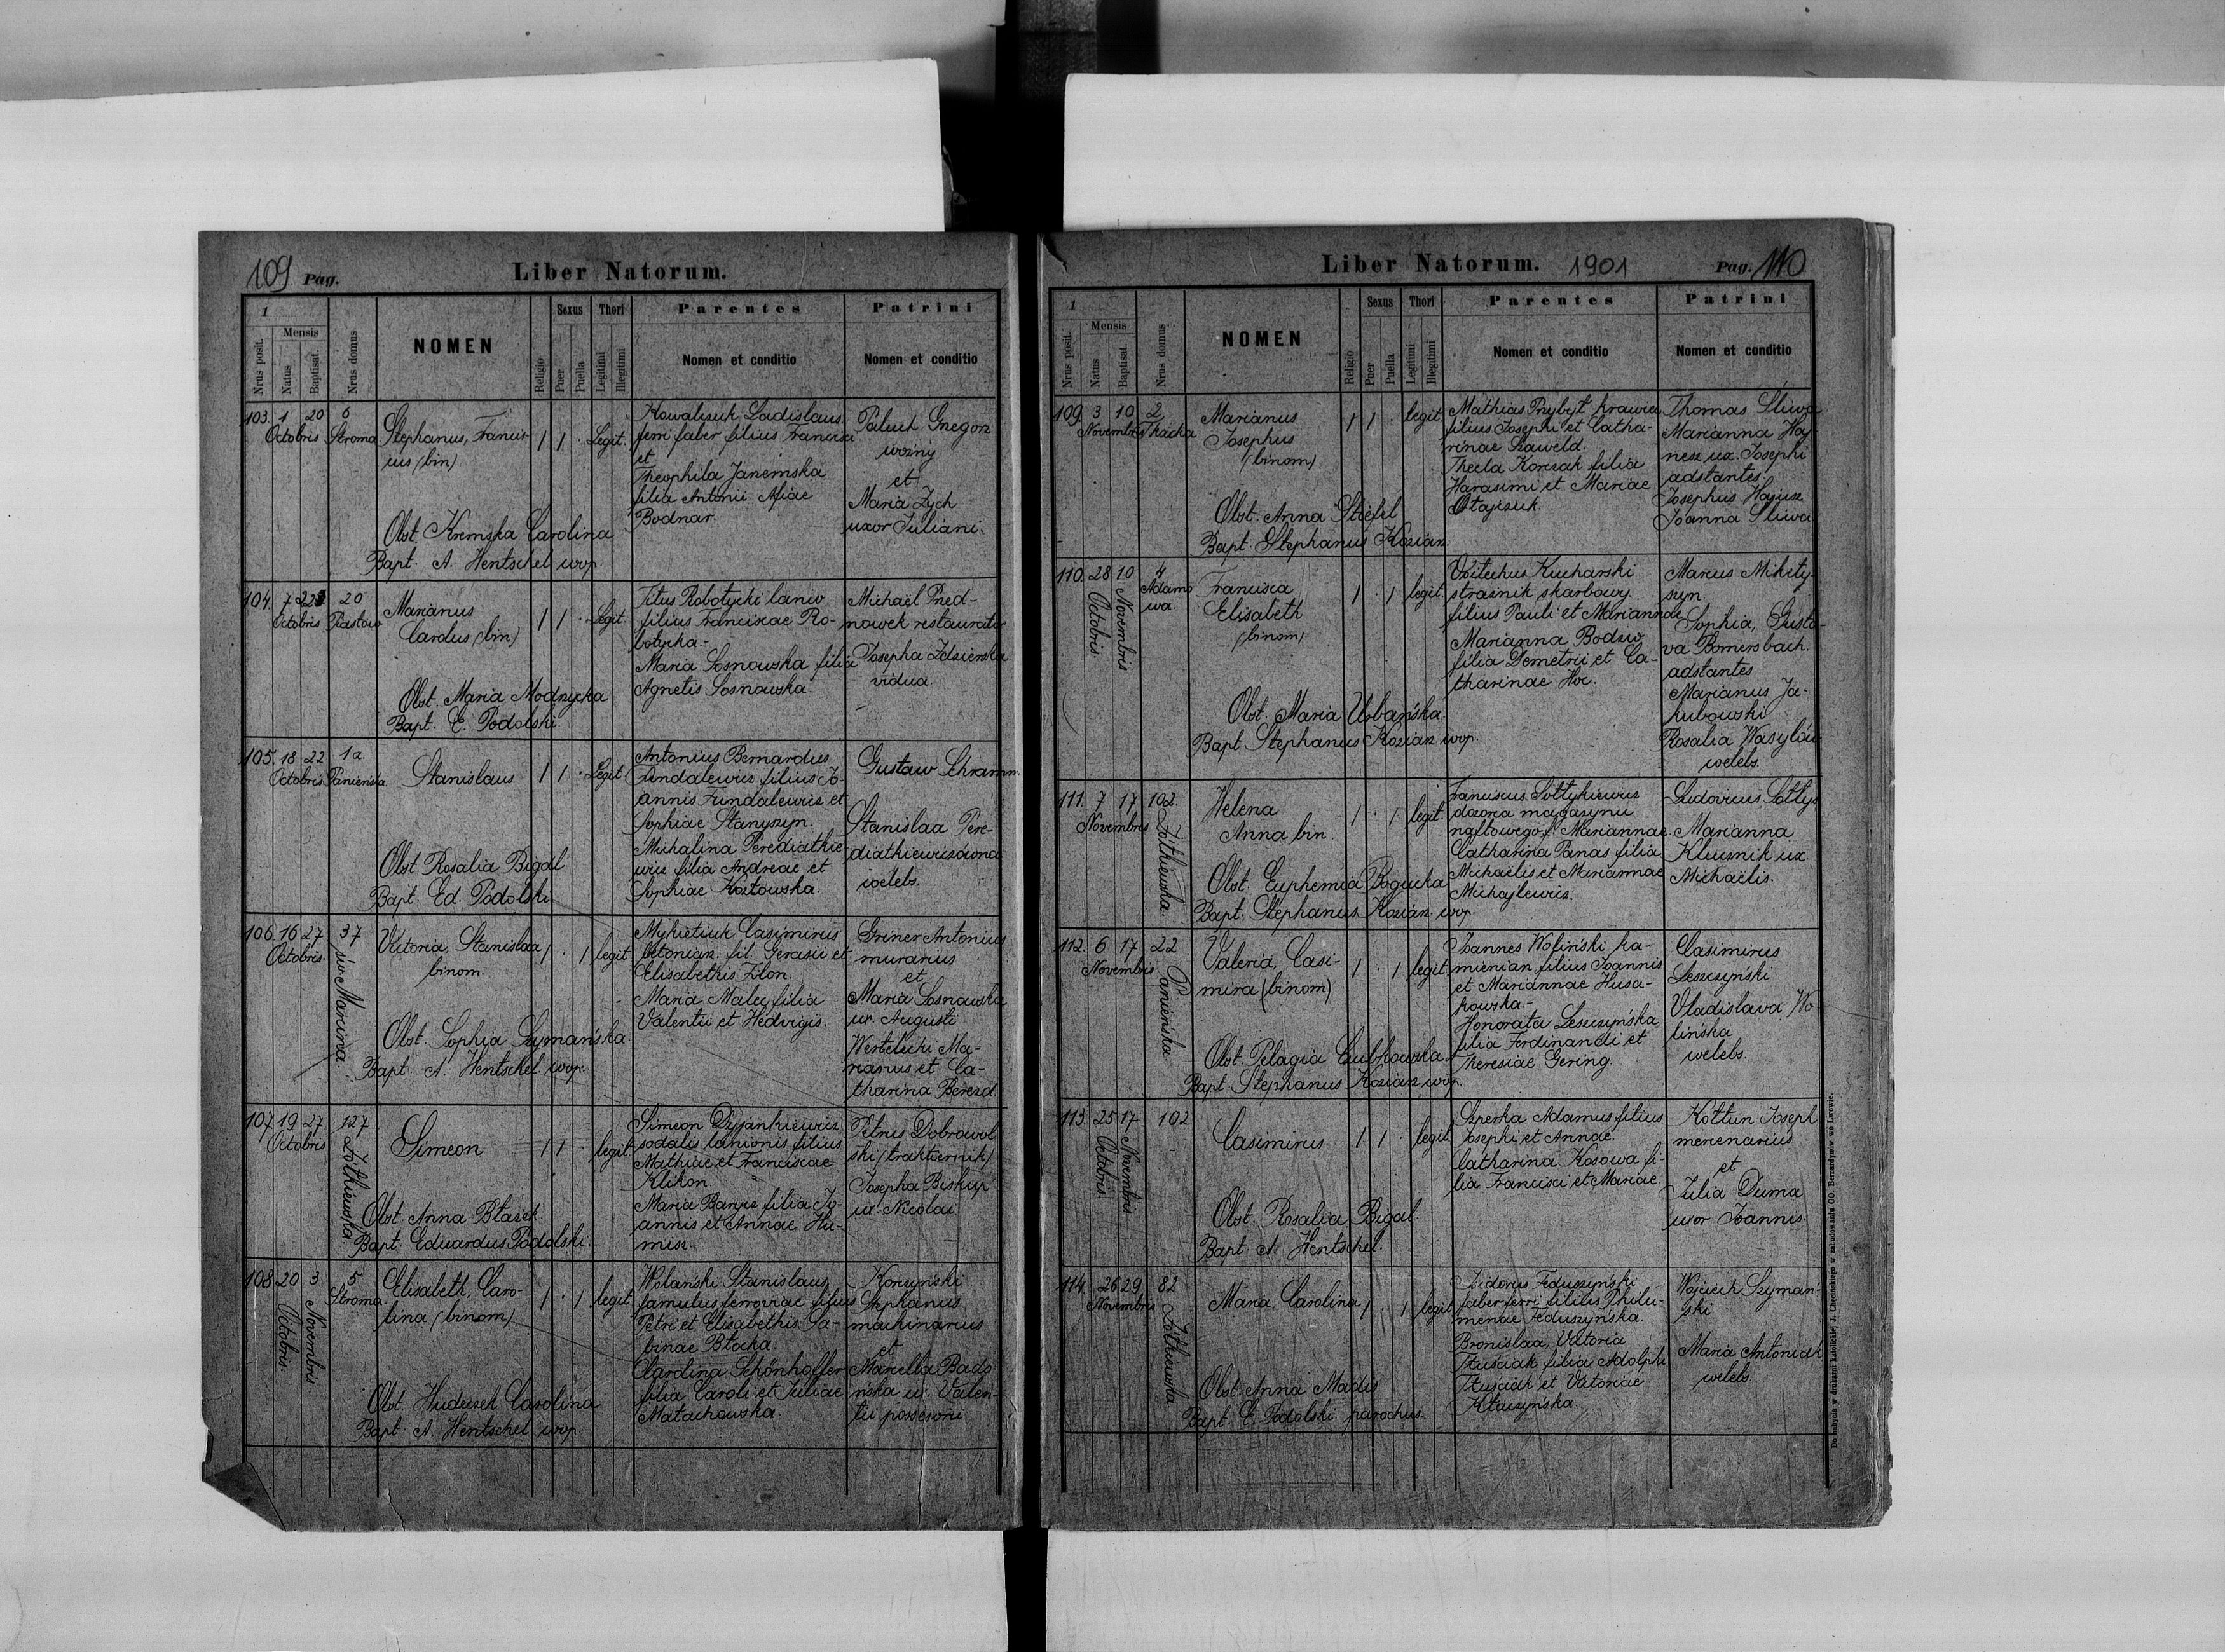 109 Pag.
Liber Natorum.
1
Nrus posit.
Mensis
Natus
Baptisat.
Nrus domus
NOMEN
Religio
Sexus
Puer
Puella
Thori
Legitimi
Illegitimi
Parentes
Nomen et conditio
Patrini
Nomen et conditio
103. 1 20 6
Octobris Stroma
Stephanus, Francis
cus (bin)
1 1 · Legit.
Obst. Kremska Carolina
Bapt. A. Hentschel wop.
Kowalczuk Ladislaus
ferri faber filius Francisci
et
Theophila Janemska
filia Antonii Mariae
Bodnar.
Paluch Gregorz
woźny
et
Maria Zych
uxor Juliani.
104. 7 22 20
Octobris Piastow
Marianus
Carolus (bin)
1 1 · Legit.
Obst. Maria Modrzycka
Bapt. E. Podolski
Titus Robotycki lanio
filius Franciscae Ro-
botycka-
Maria Sosnowska filia
Agnetis Sosnowska.
Michaël Pred-
nowek restaurator
Josepha Zdzienska
vidua.
105. 18 22 1a
Octobris Panienska
Stanislaus
1 1 · Legit
Obst. Rosalia Bigal
Bapt. Ed. Podolski
Antonius Bernardus
Fundalewicz filius Jo-
annis Fundalewicz et
Sophiae Stanyszyn.
Michalina Perediathie
wicz filia Andreae et
Sophiae Kozłowska.
Gustaw Schramm
Stanislaa Pere-
diathiewiczówna
coelebs.
106. 16 27 37
Octobris św. Marcina
Victoria, Stanislaa
binom.
1 · 1 legit
Obst. Sophia Szymańska.
Bapt. A. Hentschel wop.
Mykietiuk Casimirus
betoniarz fil. Gerasii et
Elisabethis Filon.
Maria Malec filia
Valentii et Hedvigis.
Griner Antonius
murarius
et
Maria Sosnowska
ux. Augusti
Wertelecki Ma-
rianus et Ca-
tharina Berezd.
107 19 27 127
Octobris Żółkiewska
Simeon
1 1 · legit.
Obst. Anna Błażek
Bapt. Eduardus Podolski.
Simeon Dyjankiewicz
sodalis lanionis filius
Mathiae et Franciscae
Klikon
Maria Barycz filia Jo-
annis et Annae Hu-
misz.
Petrus Dobrowol
ski (traktiernik)
Josepha Biskup
ux. Nicolai
108 20 3 5
Octobris Novembris Stroma
Elisabeth, Caro-
lina (binom)
1 · 1 legit
Obst. Hudeczek Carolina
Bapt. A. Hentschel wop
Wolański Stanislaus
famulus ferroviae filius
Petri et Elisabethis Sa-
binae Błacka.
Carolina Schönhoffer
filia Caroli et Juliae
Małachowska
Korczyński
Stephanus
machinarius
et
Marcella Bado
ńska ux. Valen-
tii possesoris
Liber Natorum. 1901
Pag. 110
1
Nrus posit.
Mensis
Natus
Baptisat.
Nrus domus
NOMEN
Religio
Sexus
Puer
Puella
Thori
Legitimi
Illegitimi
Parentes
Nomen et conditio
Patrini
Nomen et conditio
109. 3 10 2
Novembris Tkacka
Marianus
Josephus
(binom)
1 1 · legit
Obst. Anna Stiefel
Bapt. Stephanus Koziarz.
Mathias Przybył krawiec
filius Josephi et Catha-
rinae Szaweld.
Thecla Korczak filia
Harasimi et Mariae
Otajczuk.
Thomas Śliwa
Marianna Haj
nesz ux. Josephi
adstantes
Josephus Hajusz
Joanna Śliwa
110. 28 10 4
Octobris Novembris Adamo
wa.
Francisca
Elisabeth
(binom)
1 · 1 legit.
Obst. Maria Urbańska.
Bapt. Stephanus Koziarz wop.
Voitechus Kucharski
strażnik skarbowy
filius Pauli et Mariannae
Marianna Bodzio
filia Demetrii et Ca-
tharinae Hoc.
Marcus Mikity-
szyn.
Sophia, Gusta-
va Bomersbach.
adstantes
Marianus Ja-
kubowski
Rosalia Wasylów
coelebs.
111. 7 17 102.
Novembris Żółkiewska
Helena
Anna bin.
1 · 1 legit.
Obst. Euphemia Bogucka
Bapt. Stephanus Koziarz wop.
Franciscus Sołtykiewicz
dozorca magazynu
naftowego f. Mariannae.
Catharina Panas filia
Michaëlis et Mariannae
Michajlewicz.
Ludovicus Sołtys
Marianna
Klucznik ux.
Michaëlis.
112. 6 17 22
Novembris Panieńska
Valeria, Casi-
mira (binom)
1 · 1 legit
Obst. Pelagia Czubkowska
Bapt. Stephanus Koziarz wop.
Joannes Woliński ka-
mieniarz filius Joannis
et Mariannae Husa-
kowska.-
Honorata Leszczyńska
filia Ferdinandi et
Theresiae Gering.
Casimirus
Leszczyński
Vladislava Wo
lińska
coelebs.
113. 25 17 102
Octobris Novembris
Casimirus
1 1 · legit
Obst. Rosalia Bigal.
Bapt. A. Hentschel.
Szperka Adamus filius
Josephi et Annae.
Catharina Kosowa fi-
lia Francisci et Mariae.
Kołtun Joseph
mercenarius
et
Julia Duma
uxor Joannis.
114. 26 29 82
Novembris Żółkiewska
Maria, Carolina
1 · 1 legit
Obst. Anna Madis
Bapt. E. Podolski parochus.
Isidorus Feduszyński
faber ferri filius Philu-
menae Feduszyńska.
Bronislaa, Victoria
Tłuściak filia Adolphi
Tłuściak et Victoriae
Kłuczyńska.
Wojciech Szymań-
ski
Maria Antoniak
coelebs.
Do nabycia w drukarni katolickiej J. Chęcińskiego w zabudowaniu OO. Bernardynów we Lwowie.